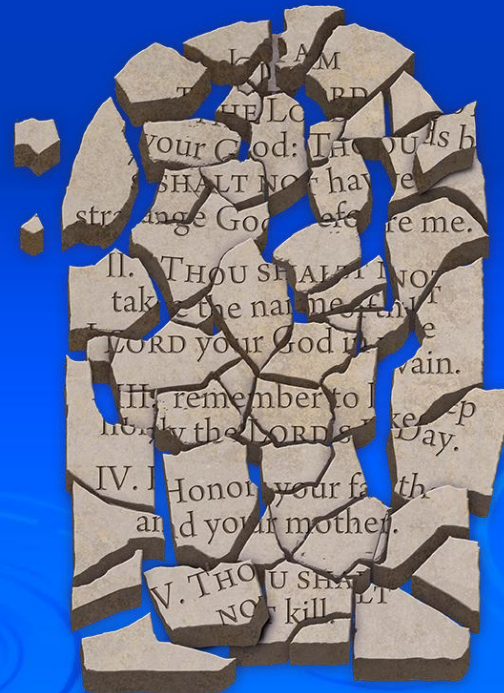 I. I AM
THE LORD
your God: THOU
SHALT NOT have
strange Gods before me.
II. THOU SHALT NOT
take the name of the
LORD your God in vain.
III. remember to keep
holy the LORD'S Day.
IV. Honor your father
and your mother.
V. THOU SHALT
NOT kill.